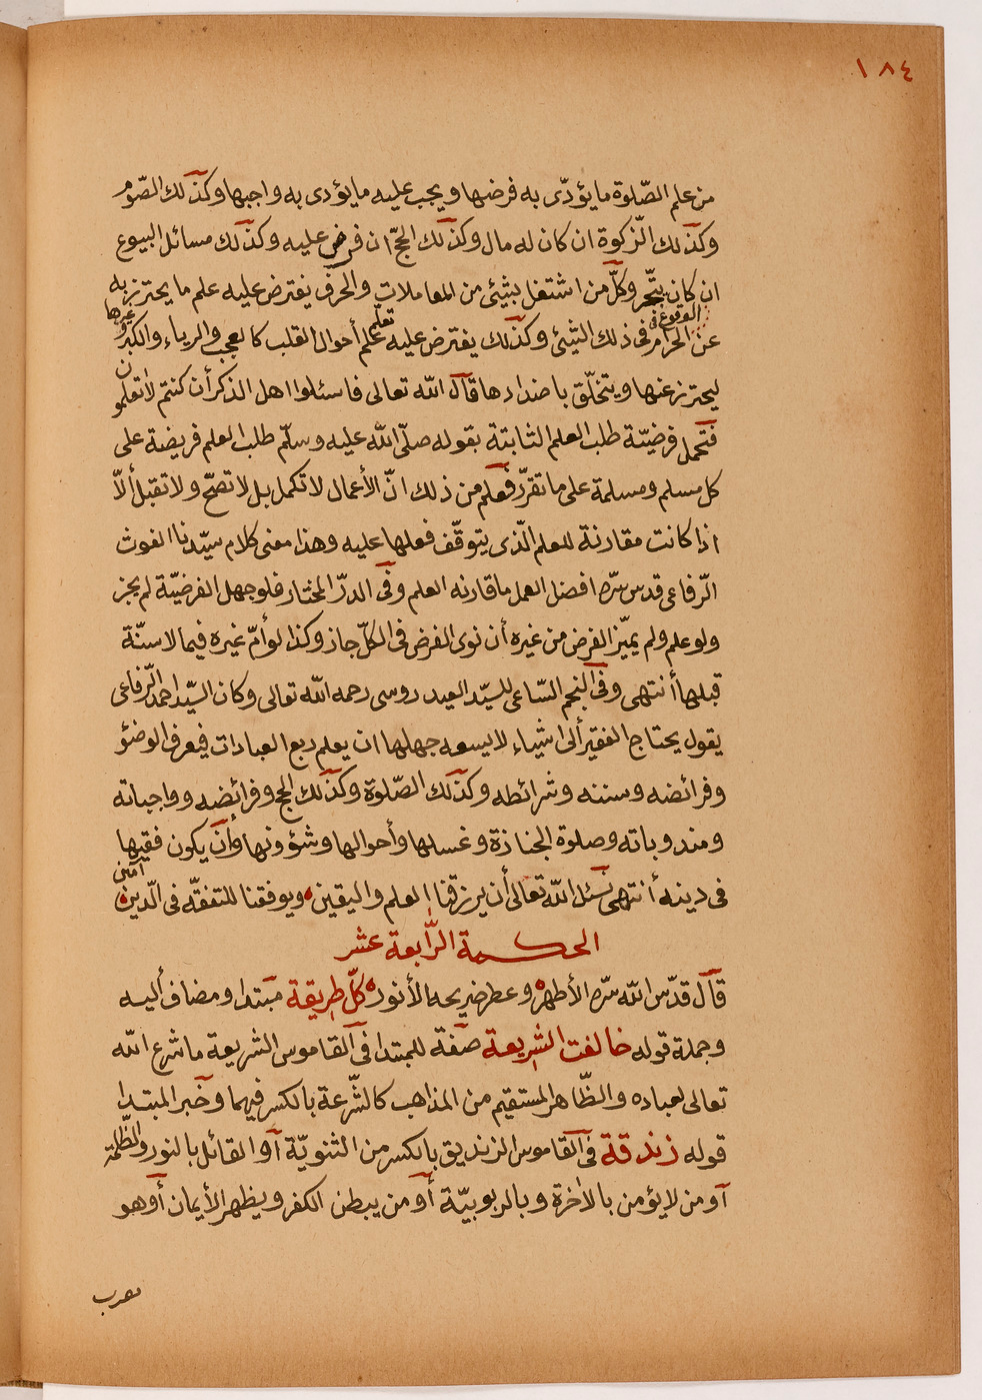 ١٨٤
من علم الصّلوة ما يؤدّى به فرضها ويجب عليه ما يؤدى به واجبها وكذلك الصّوم
وكذلك الزّكوة ان كان له مال وكذلك الحجّ ان فرض عليه وكذلك مسائل البيوع
ان كان يتّجر وكلّ من اشتغل بشئ من المعاملات والحرف يفترض عليه علم ما يحترز به
عن الوقوع فى الحرام فى ذلك الشئ وكذلك يفترض عليه تعلم علم أحوال القلب كالعجب والرياء والكبر وغيرها
ليحترز عنها ويتخلّق باضدادها قال الله تعالى فاسئلوا اهل الذكر أن كنتم لا تعلمون
فتحمل فرضيّة طلب العلم الثابتة بقوله صلّى الله عليه وسلّم طلب العلم فريضة على
كل مسلم ومسلمة على ما تقرّر فعلم من ذلك انّ الأعمال لا تكمل بل لا تصحّ ولا تقبل ألّا
اذا كانت مقارنة للعلم الّذى يتوقّف فعلها عليه وهذا معنى كلام سيّدنا الغوث
الرّفاعى قدس سرّه افضل العمل ما قارنه العلم وفى الدرّ المختار فلو جهل الفرضيّة لم يجز
ولو علم ولم يميّز الفرض من غيره أن نوى الفرض فى الكلّ جاز وكذا لو أمّ غيره فيما لا سنّة
قبلها أنتهى وفى النجم السّاعى للسيّد العيدروسى رحمه الله تعالى وكان السيّد احمد الرّفاعى
يقول يحتاج الفقير ألى اشياء لا يسعه جهلها ان يعلم ربع العبادات فيعرف الوضؤ
وفرائضه وسننه وشرائطه وكذلك الصّلوة وكذلك الحج وفرائضه وواجباته
ومندوباته وصلوة الجنازة وغسلها وأحوالها وشؤونها وأن يكون فقيها
فى دينه أنتهى نسئل الله تعالى أن يرزقنا العلم واليقين ويوفقنا للتفقّه فى الّدين آمين
الحكمة الرّابعة عشر
قال قدّس الله سرّه الأطهر وعطر ضريحه الأنور كلّ طريقة مبتدا ومضاف أليه
وجملة قوله خالفت الشريعة صفة للمبتدا فى القاموس الشريعة ما شرع الله
تعالى لعباده والظّاهر المستقيم من المذاهب كالشّرعة بالكسر فيهما وخبر المبتدا
قوله زندقة فى القاموس الزنديق بالكسر من الثنويّة أو القائل بالنور والظّلمة
أو من لا يؤمن بالاخرة وبالربوبيّة أو من يبطن الكفر ويظهر الأيمان أو هو
معرب